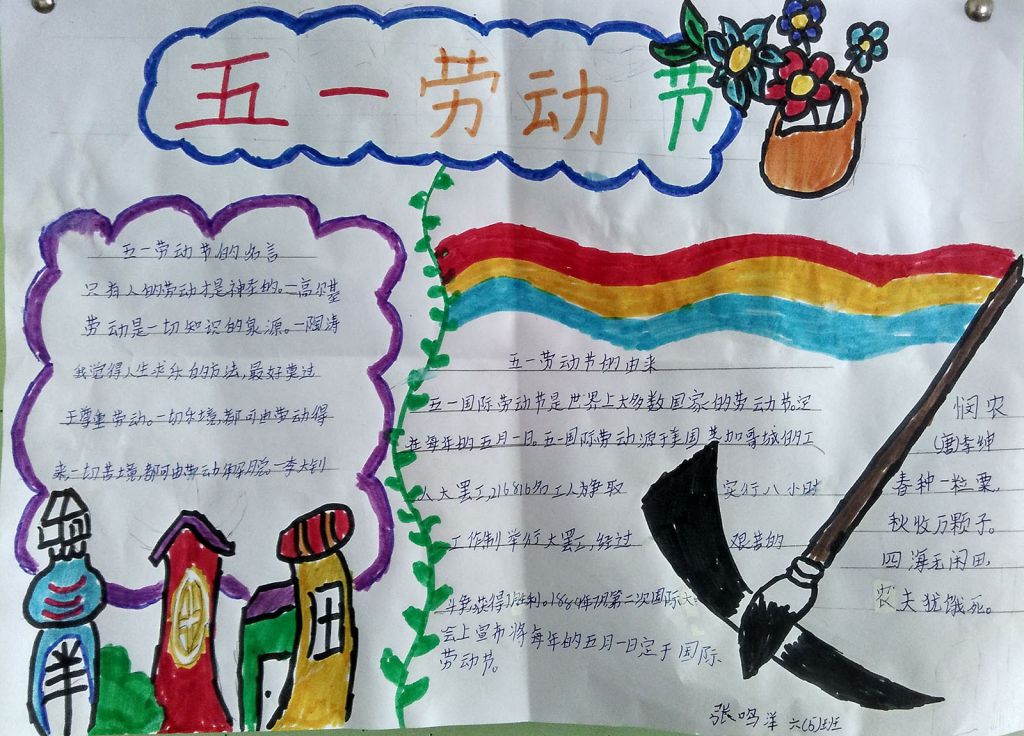 五一劳动节
五一劳动节的名言
只有人的劳动才是神圣的。—高尔基
劳动是一切知识的泉源。—陶涛
我觉得人生求乐的方法,最好莫过
于尊重劳动。一切乐境,都可由劳动得
来,一切苦境,都可由劳动解脱。—李大钊
五一劳动节的由来
五一国际劳动节是世界上大多数国家的劳动节。定
在每年的五月一日。五一国际劳动源于美国芝加哥城的工
人大罢工,216816名工人为争取 实行八小时
工作制举行大罢工,经过 艰苦的
斗争,获得了胜利。1889年7月第二次国际大
会上宣布将每年的五月一日定于国际
劳动节。
悯农
(唐)李绅
春种一粒粟,
秋收万颗子。
四海无闲田,
农夫犹饿死。
张鸣洋 六(5)班